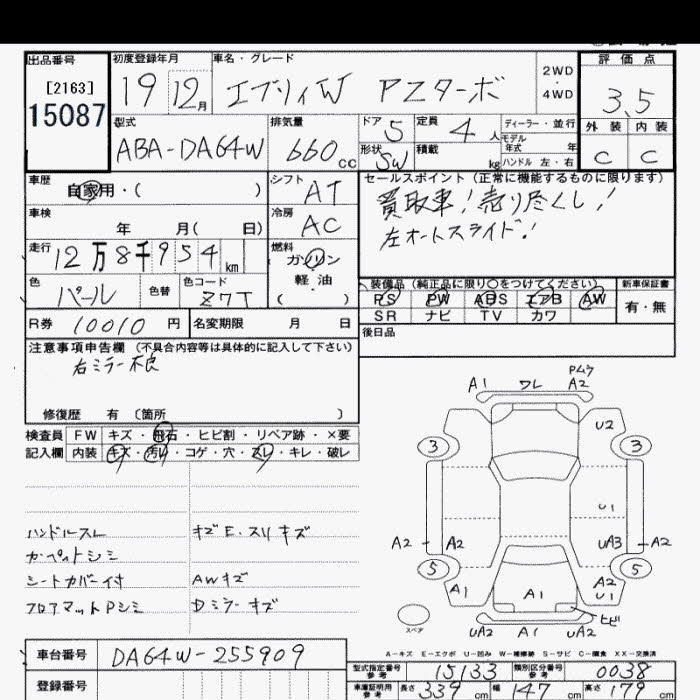 出品番号 初度登録年月 車名・グレード 評価点
[2163] 15087 19 12月 エブリィW PZターボ 2WD・4WD 3.5
型式 排気量 ドア 5 定員 4人 ディーラー・並行 外装 内装
ABA-DA64W 660cc 形状 SW 積載 kg モデル年式 年 ハンドル 左・右 C C
車歴 自家用・( ) シフト AT セールスポイント(正常に機能するものに限ります)
車検 年 月( 日) 冷房 AC 買取車!売り尽くし!
走行 12万8千954km 燃料 ガソリン 軽・油 ( ) 左オートスライド!
色 パール 色替 色コード Z7T 装備品(純正品に限り○をつけてください) 新車保証書
PS PW ABS エアB AW 有・無
SR ナビ TV カワ
R券 10010円 名変期限 月 日 後日品
注意事項申告欄(不具合内容等は具体的に記入して下さい)
右ミラー不良
修復歴 有 〔箇所 〕
検査員 FW キズ・飛石・ヒビ割・リペア跡・×要
記入欄 内装 キズ・汚レ・コゲ・穴・スレ・キレ・破レ
ハンドルスレ キズE.スリキズ
カーペットシミ
シートカバー付 AWキズ
フロアマットPシミ Dミラーキズ
A1 ワレ A2
U2
3 3
U1
A2 A2 UA3 A2
5 5
A1 A1 A2 U1
スペア UA2 A1 UA2 ヒビ
A-キズ E-エクボ U-凹み W-補修跡 S-サビ C-腐食 XX-交換済
車台番号 DA64W-255909
型式指定番号 参考 15133 類別区分番号 参考 0038
登録番号 車庫証明用 参考 長さ 339cm 幅 147cm 高さ 179cm